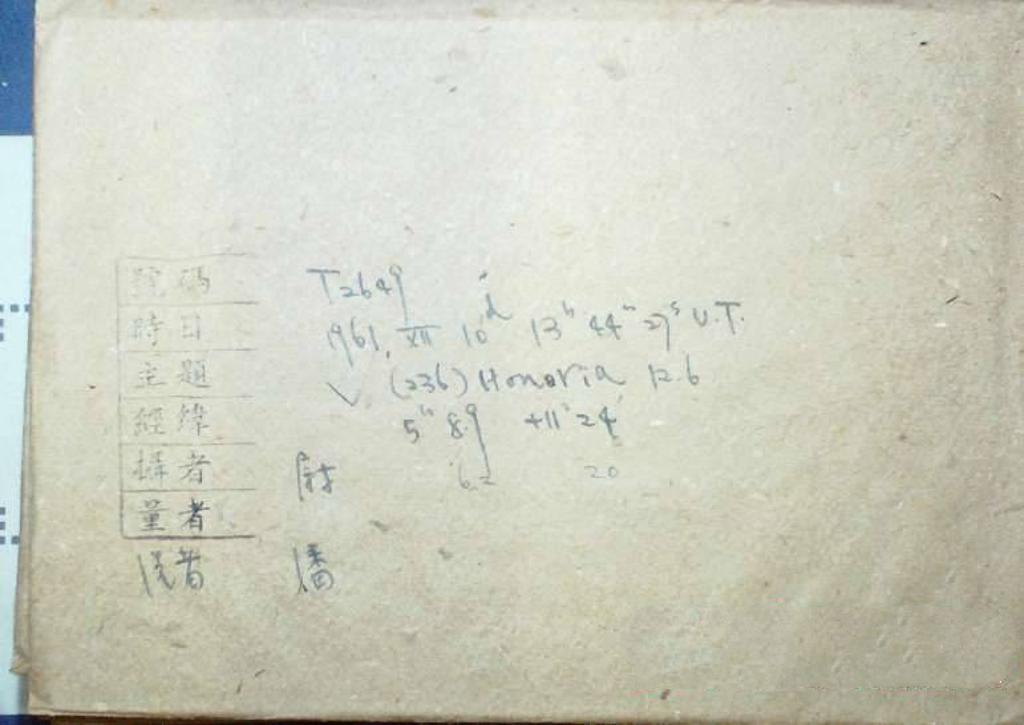 號碼 T2649
時日 1961. XII 10ᵈ 13ʰ 44ᵐ 27ˢ U.T.
主題 ✓ (236) Honoria 12.6
經緯 5ʰ 8.9 +11° 24′
6.2 20
攝者 尉
量者
洗者 潘